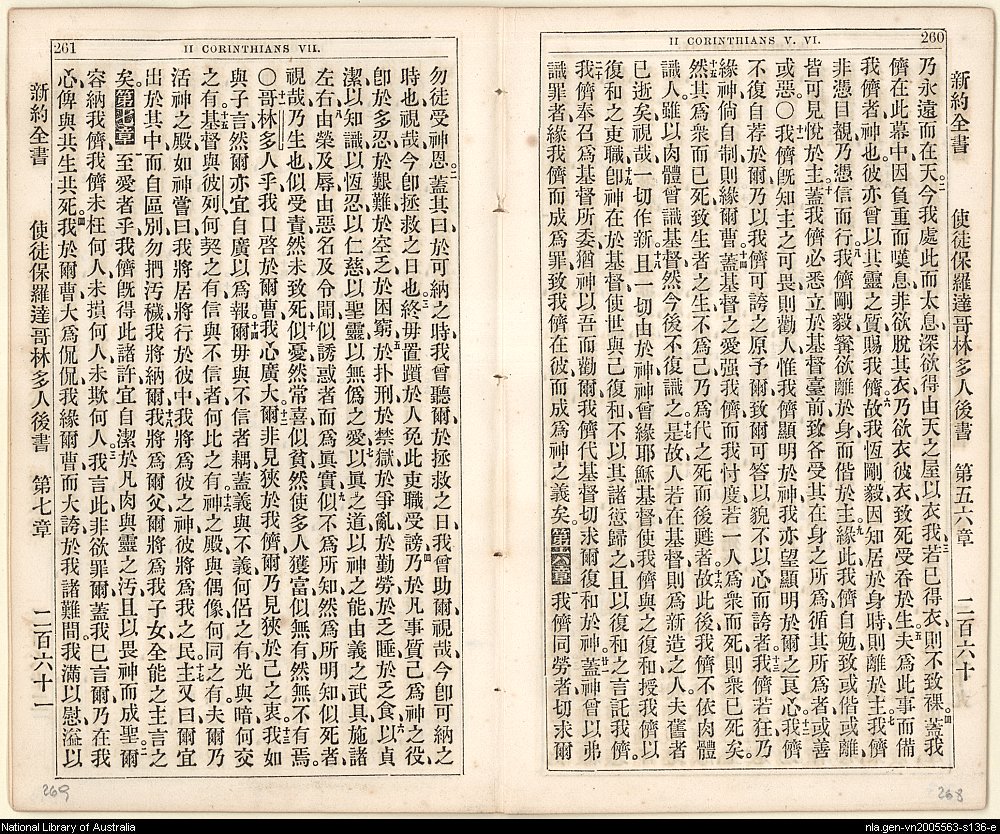 260
II CORINTHIANS V. VI.
新約全書 使徒保羅達哥林多人後書 第五六章 二百六十
乃永遠而在天今我處此而太息深欲得由天之屋以衣我若已得衣則不致裸蓋我
儕在此幕中因負重而嘆息非欲脫其衣乃欲衣彼衣致死受吞於生夫爲此事而備
我儕者神也彼亦曾以其靈之質賜我儕故我恆剛毅因知居於身時則離於主我儕
非憑目覩乃憑信而行我儕剛毅寧欲離於身而偕於主緣此我儕自勉致或偕或離
皆可見悅於主蓋我儕必悉立於基督臺前致各受其在身之所爲循其所爲者或善
或惡〇我儕旣知主之可畏則勸人惟我儕顯明於神我亦望顯明於爾之良心我儕
不復自荐於爾乃以我儕可誇之原予爾致爾可答以貌不以心而誇者我儕若狂乃
緣神倘自制則緣爾曹蓋基督之愛强我儕而我忖度若一人爲衆而死則衆已死矣
然其爲衆而已死致生者之生不爲己乃爲代之死而後甦者故此後我儕不依肉體
識人雖以肉體曾識基督然今後不復識之是故人若在基督則爲新造之人夫舊者
已逝矣視哉一切作新且一切由於神神曾緣耶穌基督使我儕與之復和授我儕以
復和之吏職卽神在於基督使世與己復和不以其諸愆歸之且以復和之言託我儕
我儕奉召爲基督所委猶神以吾而勸爾我儕代基督切求爾復和於神蓋神曾以弗
識罪者緣我儕而成爲罪致我儕在彼而成爲神之義矣第六章我儕同勞者切求爾
261
II CORINTHIANS VII.
勿徒受神恩蓋其曰於可納之時我曾聽爾於拯救之日我曾助爾視哉今卽可納之
時也視哉今卽拯救之日也終毋置躓於人免此吏職受謗乃於凡事質己爲神之役
卽於多忍於艱難於空乏於困窮於扑刑於禁獄於爭亂於勤勞於乏睡於乏食以貞
潔以知識以恆忍以仁慈以聖靈以無僞之愛以眞之道以神之能由義之武具施諸
左右由榮及辱由惡名及令聞似誘惑者而爲眞實似不爲所知然爲所明知似死者
視哉乃生也似受責然未致死似憂然常喜似貧然使多人獲富似無有然無不有焉
〇哥林多人乎我口啓於爾曹我心廣大爾非見狹於我儕爾乃見狹於己之衷我如
與子言然爾亦宜自廣以爲報爾毋與不信者耦蓋義與不義何侶之有光與暗何交
之有基督與彼列何契之有信與不信者何比之有神之殿與偶像何同之有夫爾乃
活神之殿如神嘗曰我將居將行於彼中我將爲彼之神彼將爲我之民主又曰爾宜
出於其中而自區別勿捫汚穢我將納爾我將爲爾父爾將爲我子女全能之主言之
矣第七章至愛者乎我儕旣得此諸許宜自潔於凡肉與靈之汚且以畏神而成聖爾
容納我儕我儕未枉何人未損何人未欺何人我言此非欲罪爾蓋我已言爾乃在我
心俾與共生共死我於爾曹大爲侃侃我緣爾曹而大誇於我諸難間我滿以慰溢以
新約全書 使徒保羅達哥林多人後書 第七章 二百六十一
269
268
National Library of Australia
nla.gen-vn2005563-s136-e